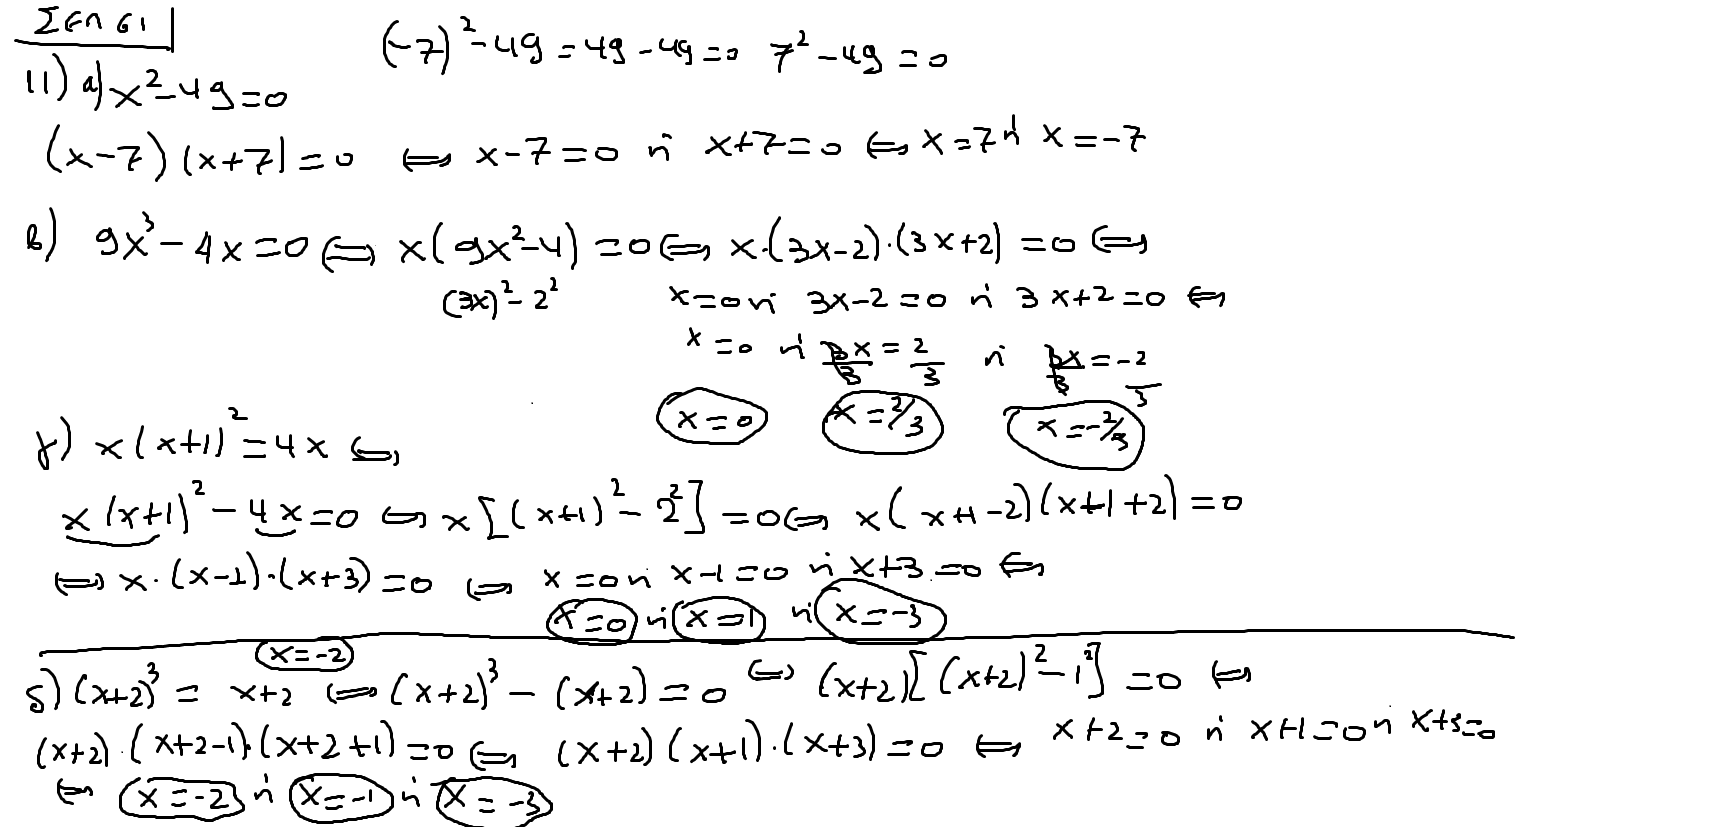 Σελ 61
(-7)² - 49 = 49 - 49 = 0   7² - 49 = 0
11) α) x² - 49 = 0
(x-7)(x+7) = 0 ⇔ x-7=0 ή x+7=0 ⇔ x=7 ή x=-7
β) 9x³ - 4x = 0 ⇔ x(9x²-4) = 0 ⇔ x·(3x-2)·(3x+2) = 0 ⇔
(3x)² - 2²   x=0 ή 3x-2=0 ή 3x+2=0 ⇔
x=0 ή 3x/3 = 2/3 ή 3x/3 = -2/3
x=0   x=2/3   x=-2/3
γ) x(x+1)² = 4x ⇔
x(x+1)² - 4x = 0 ⇔ x[(x+1)² - 2²] = 0 ⇔ x(x+1-2)(x+1+2) = 0
⇔ x·(x-1)·(x+3) = 0 ⇔ x=0 ή x-1=0 ή x+3=0 ⇔
x=0 ή x=1 ή x=-3
x=-2
δ) (x+2)³ = x+2 ⇔ (x+2)³ - (x+2) = 0 ⇔ (x+2)[(x+2)² - 1²] = 0 ⇔
(x+2)·(x+2-1)·(x+2+1) = 0 ⇔ (x+2)(x+1)·(x+3) = 0 ⇔ x+2=0 ή x+1=0 ή x+3=0
⇔ x=-2 ή x=-1 ή x=-3